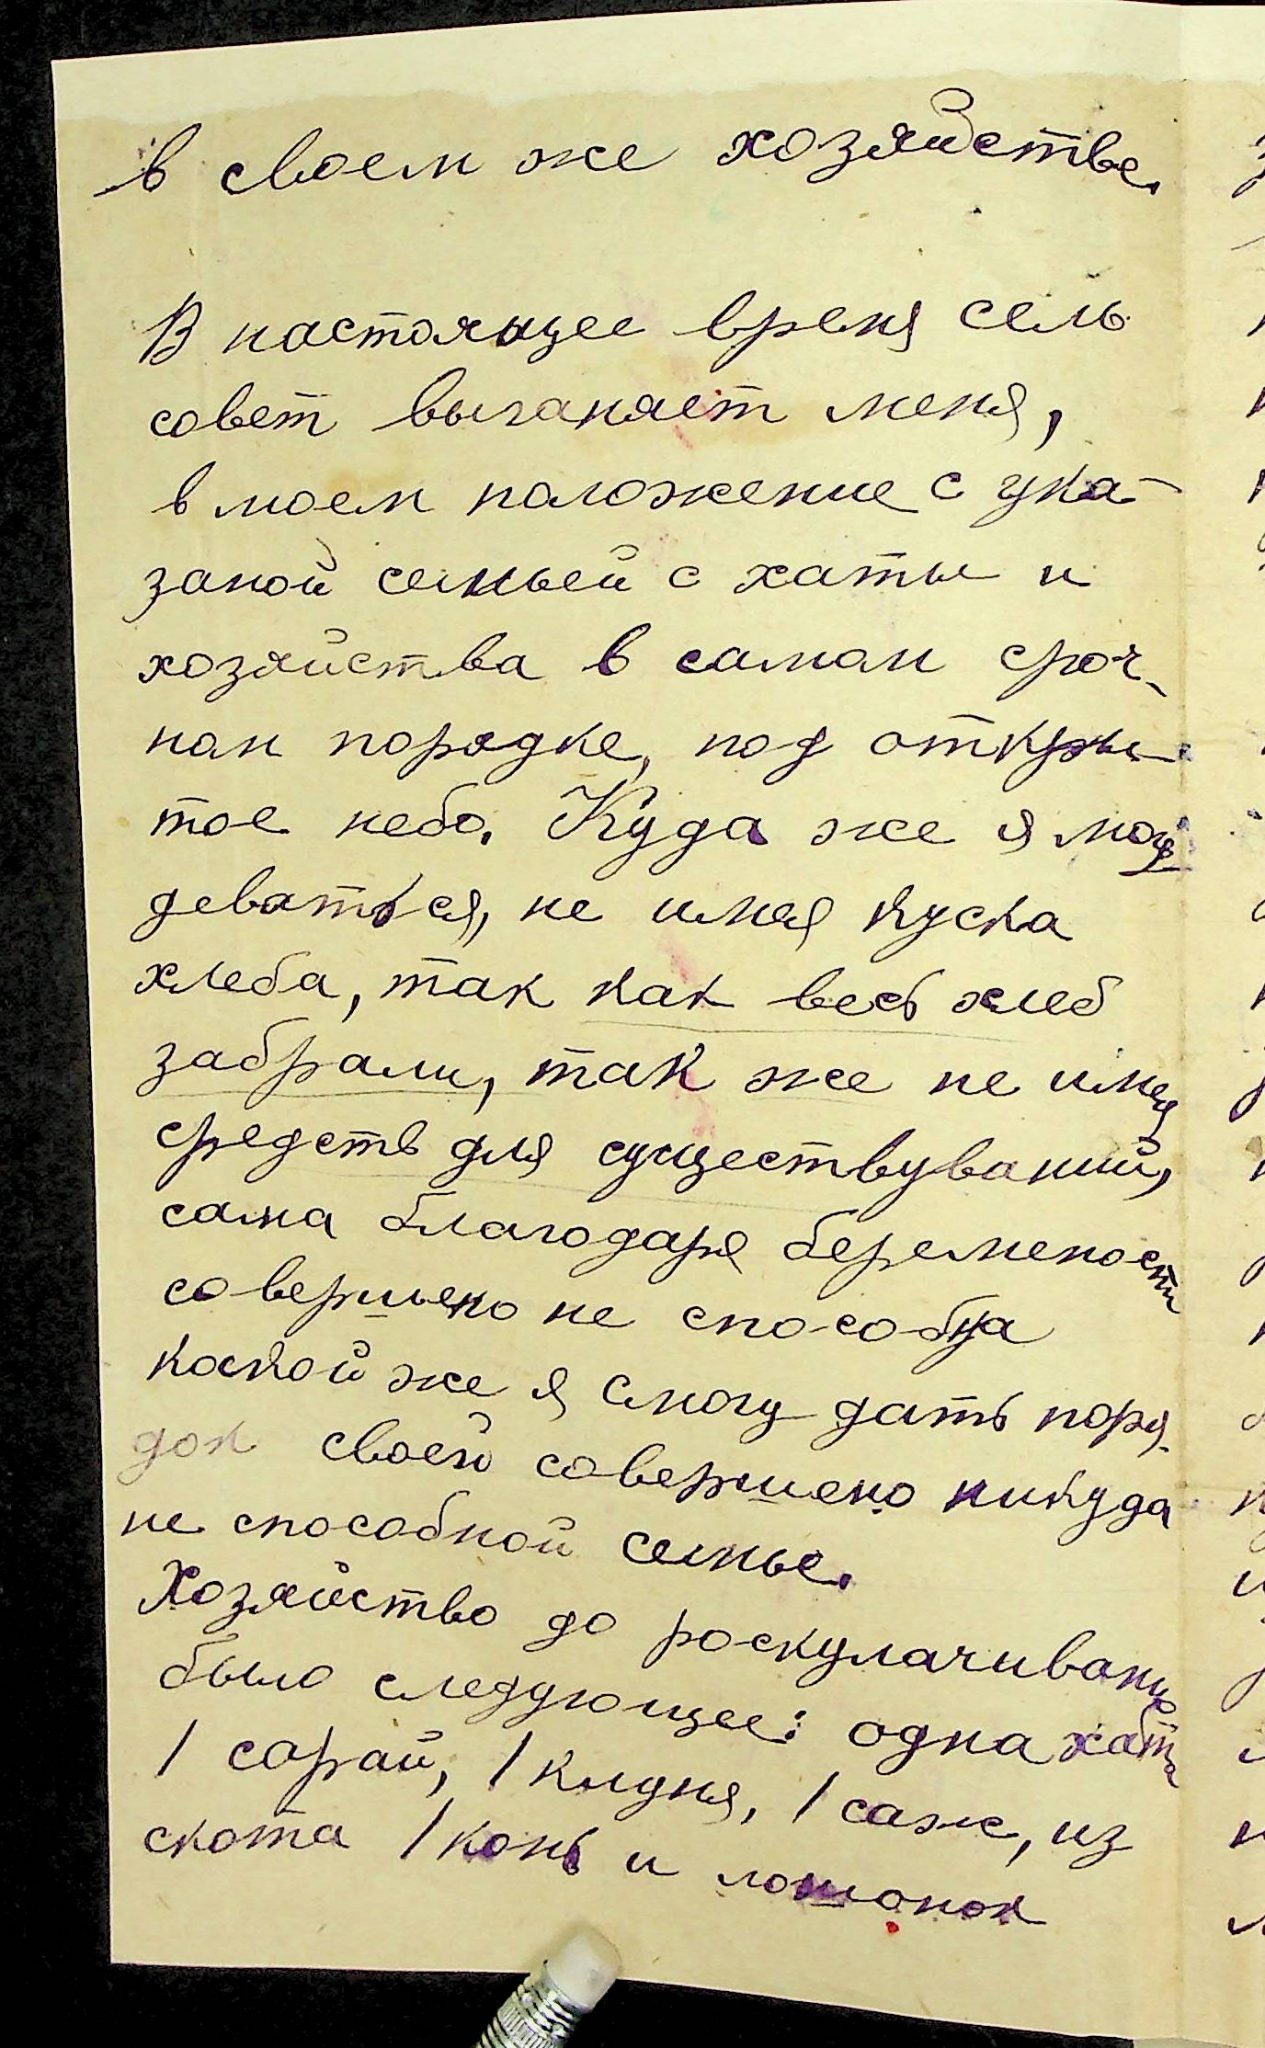 в своем же хозяйстве.
В настоящее время сель
совет выганяет меня,
в моем положение с ука-
заной семьей с хаты и
хозяйства в самом сроч-
ном порядке, под откры-
тое небо. Куда же я могу
деваться, не имея куска
хлеба, так как весь хлеб
забрали, так же не имея
средств для существуваний,
сама благодаря беремености
совершено не способна
какой же я смогу дать поря-
док своей совершено никуда
не способной семье.
Хозяйство до роскулачивания
было следующее: одна хата
1 сарай, 1 клуня, 1 саж, из
скота 1 конь и лошонок